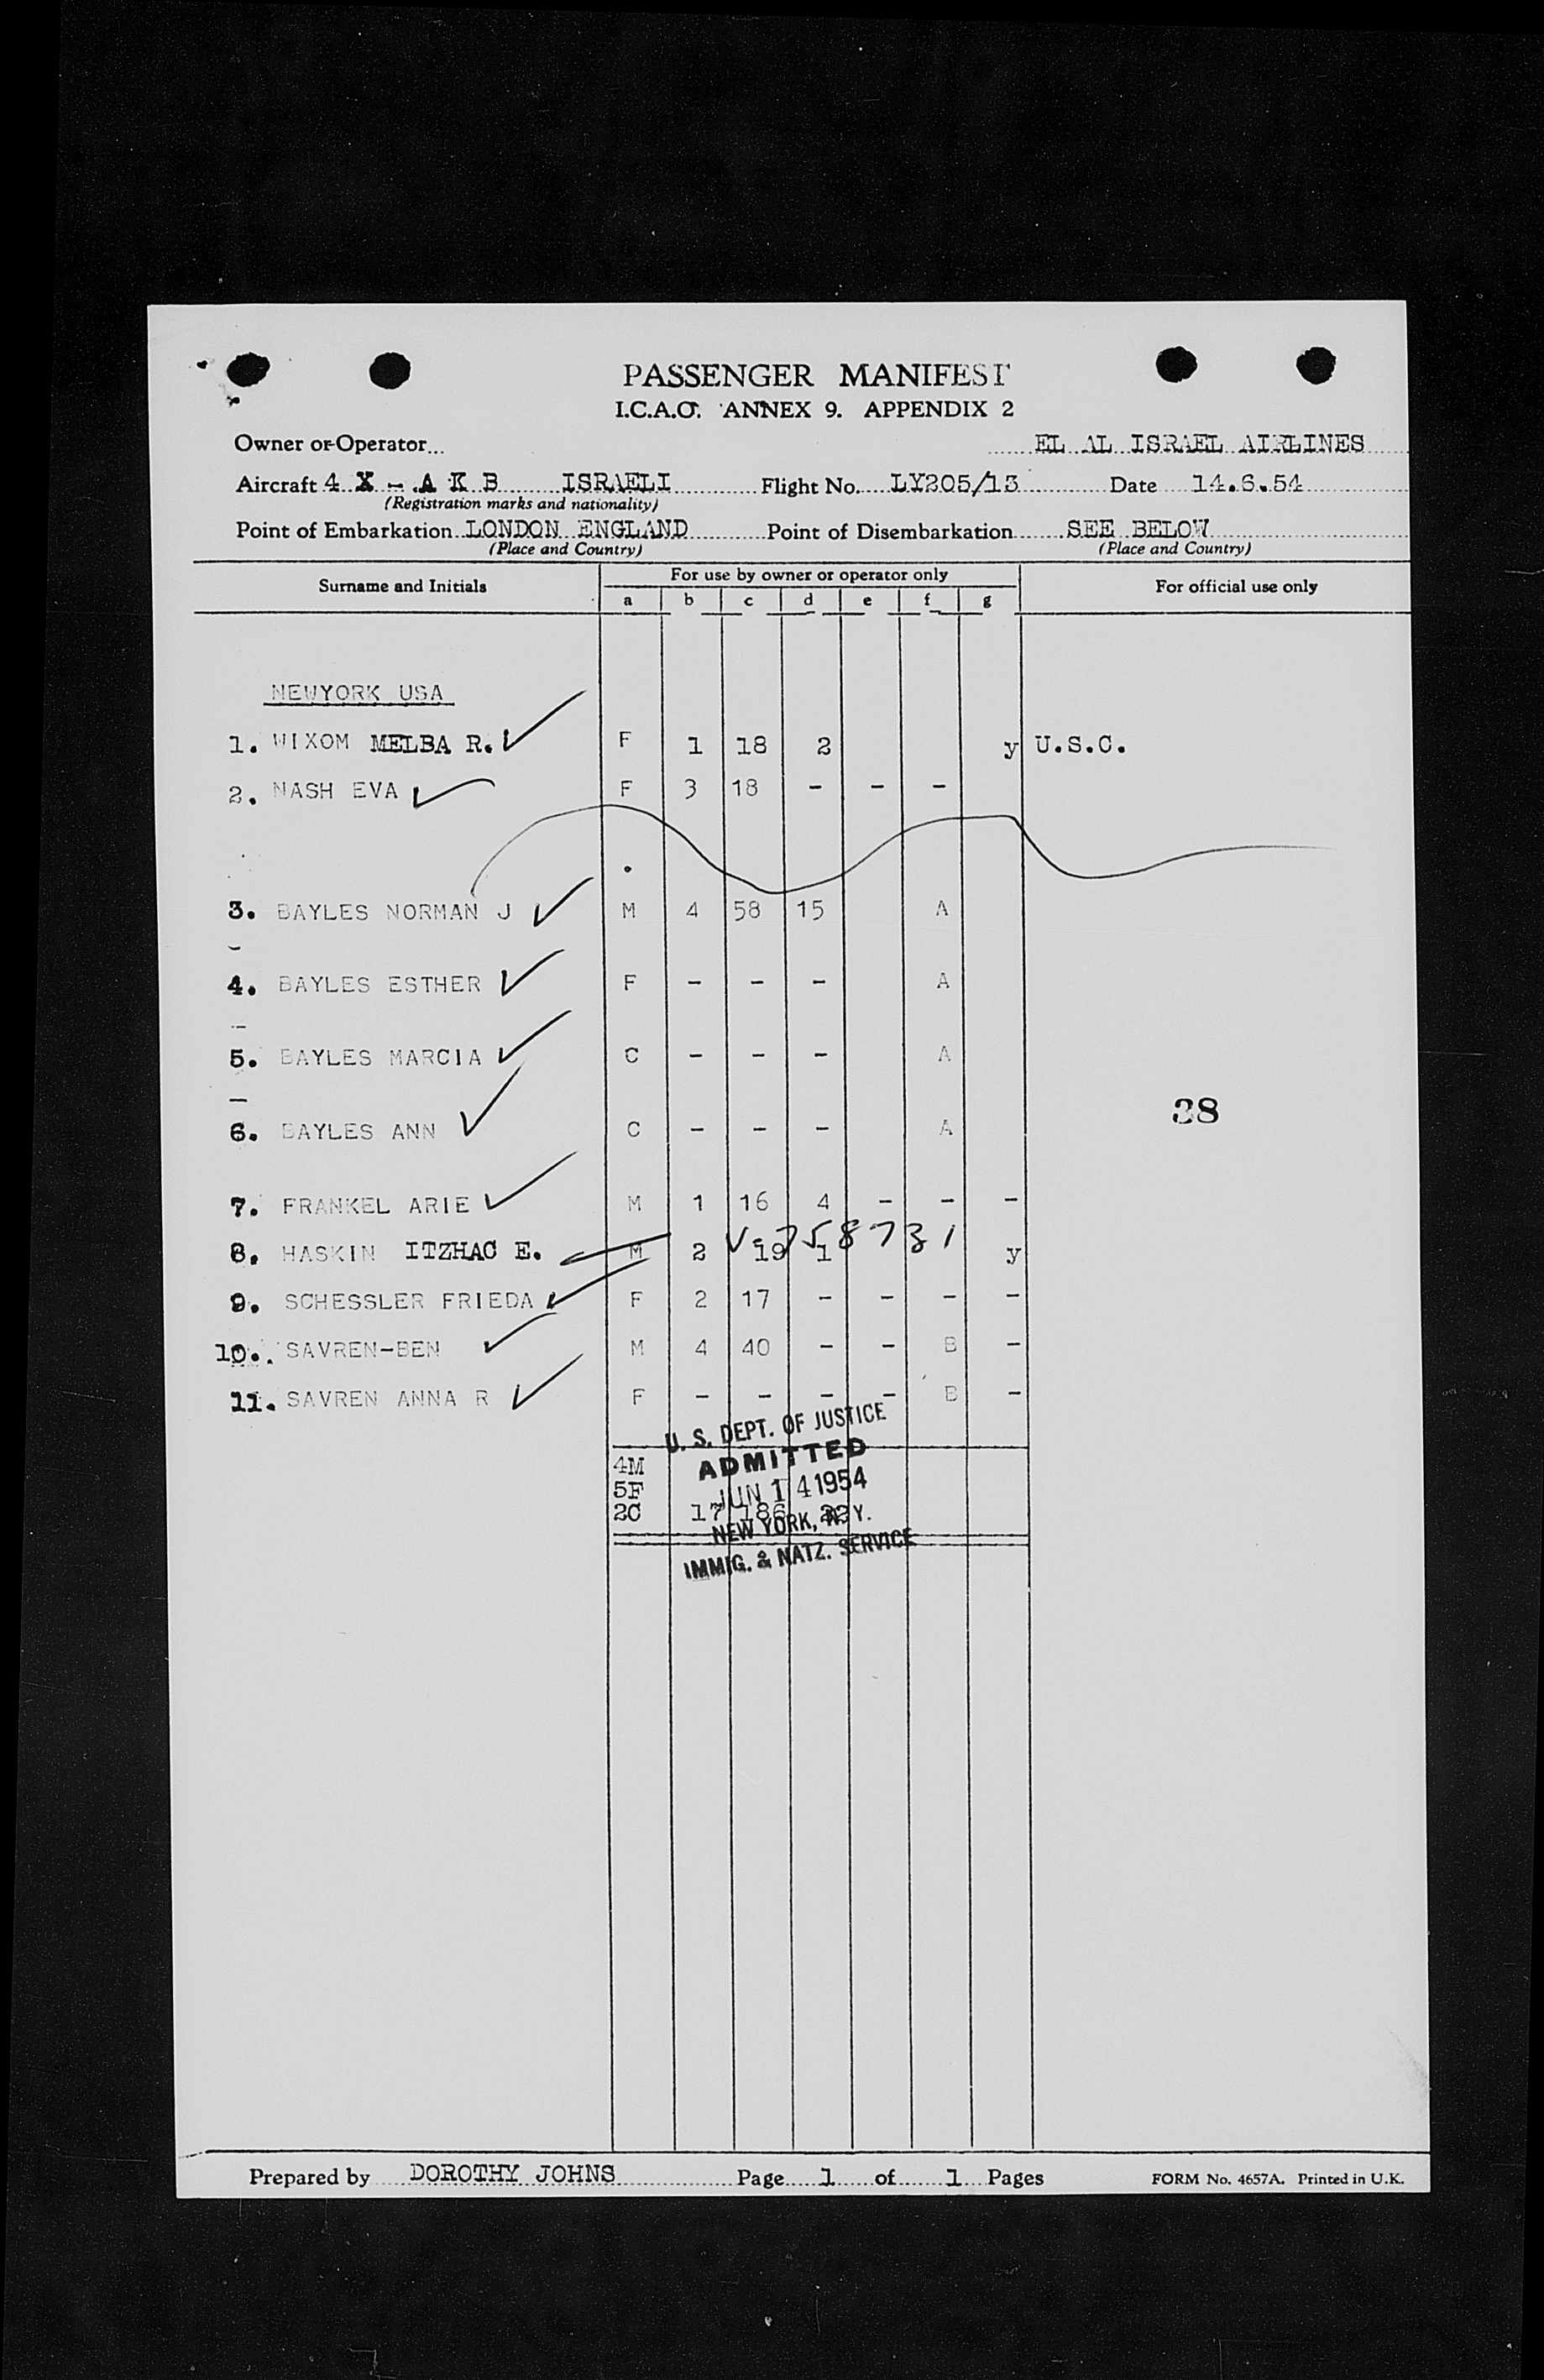 PASSENGER MANIFEST
I.C.A.O. ANNEX 9. APPENDIX 2
Owner or Operator EL AL ISRAEL AIRLINES
Aircraft 4 X - A K B ISRAELI Flight No. LY205/13 Date 14.6.54
(Registration marks and nationality)
Point of Embarkation LONDON ENGLAND Point of Disembarkation SEE BELOW
(Place and Country) (Place and Country)
Surname and Initials For use by owner or operator only For official use only
a b c d e f g
NEWYORK USA
1. WIXOM MELBA R. F 1 18 2 y U.S.C.
2. NASH EVA F 3 18 - - -
3. BAYLES NORMAN J M 4 58 15 A
4. BAYLES ESTHER F - - - A
5. BAYLES MARCIA C - - - A
38
6. BAYLES ANN C - - - A
7. FRANKEL ARIE M 1 16 4 - - -
V-758731
8. HASKIN ITZHAC E. M 2 19 1 y
9. SCHESSLER FRIEDA F 2 17 - - - -
10. SAVREN-BEN M 4 40 - - B -
11. SAVREN ANNA R F - - - - B -
U. S. DEPT. OF JUSTICE
ADMITTED
JUN 14 1954
NEW YORK, N.Y.
IMMIG. & NATZ. SERVICE
4M
5F
2C 17 186 22
Prepared by DOROTHY JOHNS Page 1 of 1 Pages FORM No. 4657A. Printed in U.K.